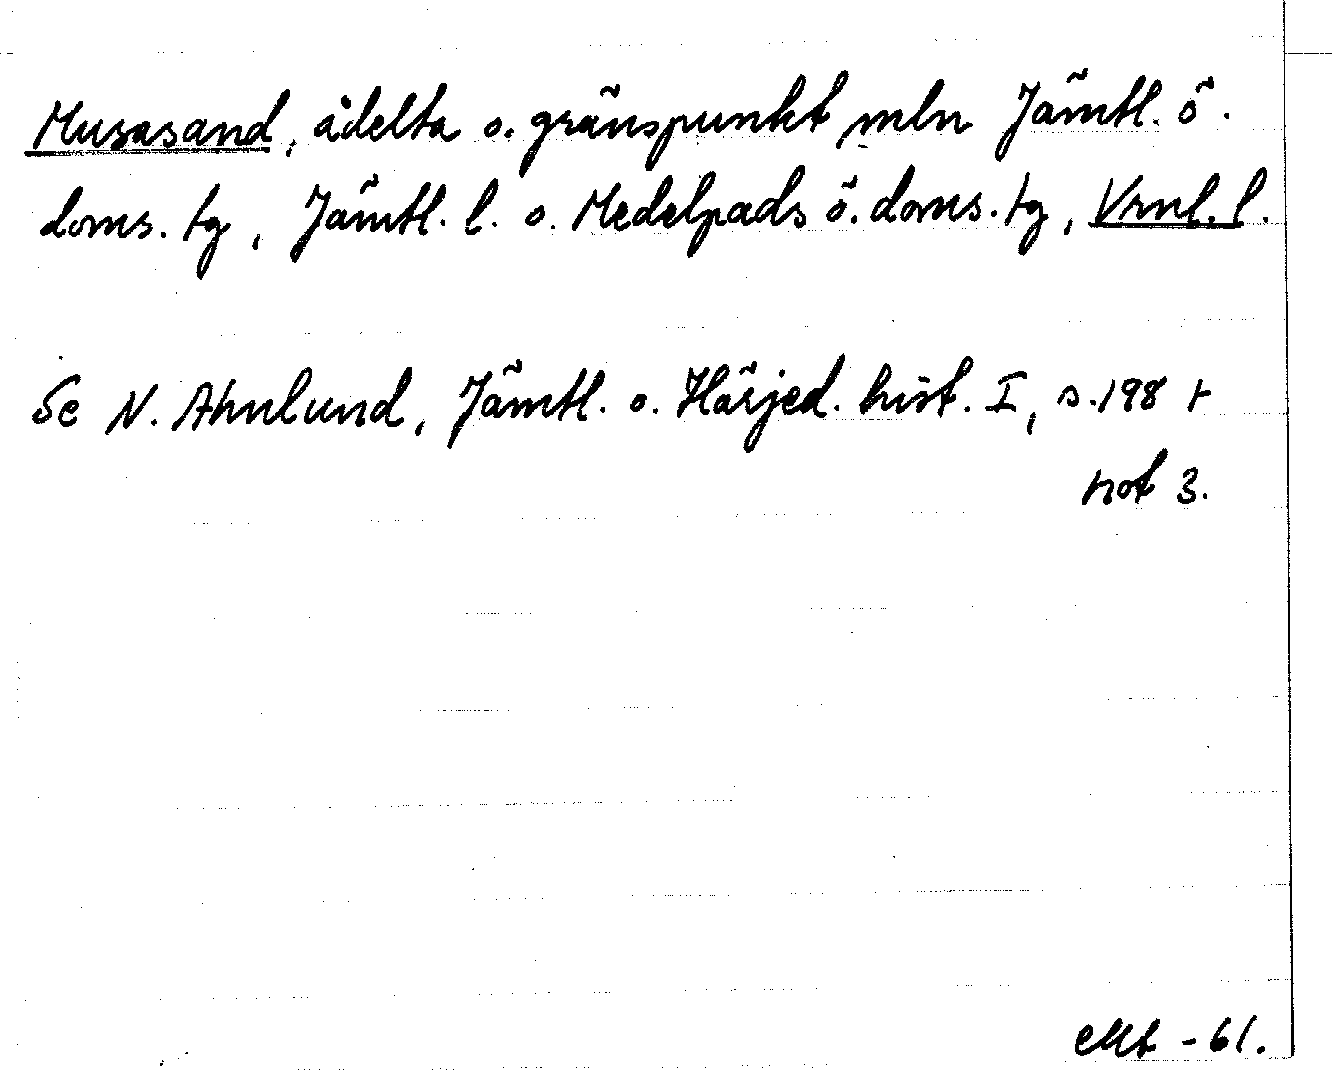 Musasand, ådelta o. gränspunkt mln Jämtl. ö.
doms. tg, Jämtl. l. o. Medelpads ö. doms. tg, Vrnl. l.
Se N. Ahnlund, Jämtl. o. Härjed. hist. I, s. 198 +
not 3.
-61.